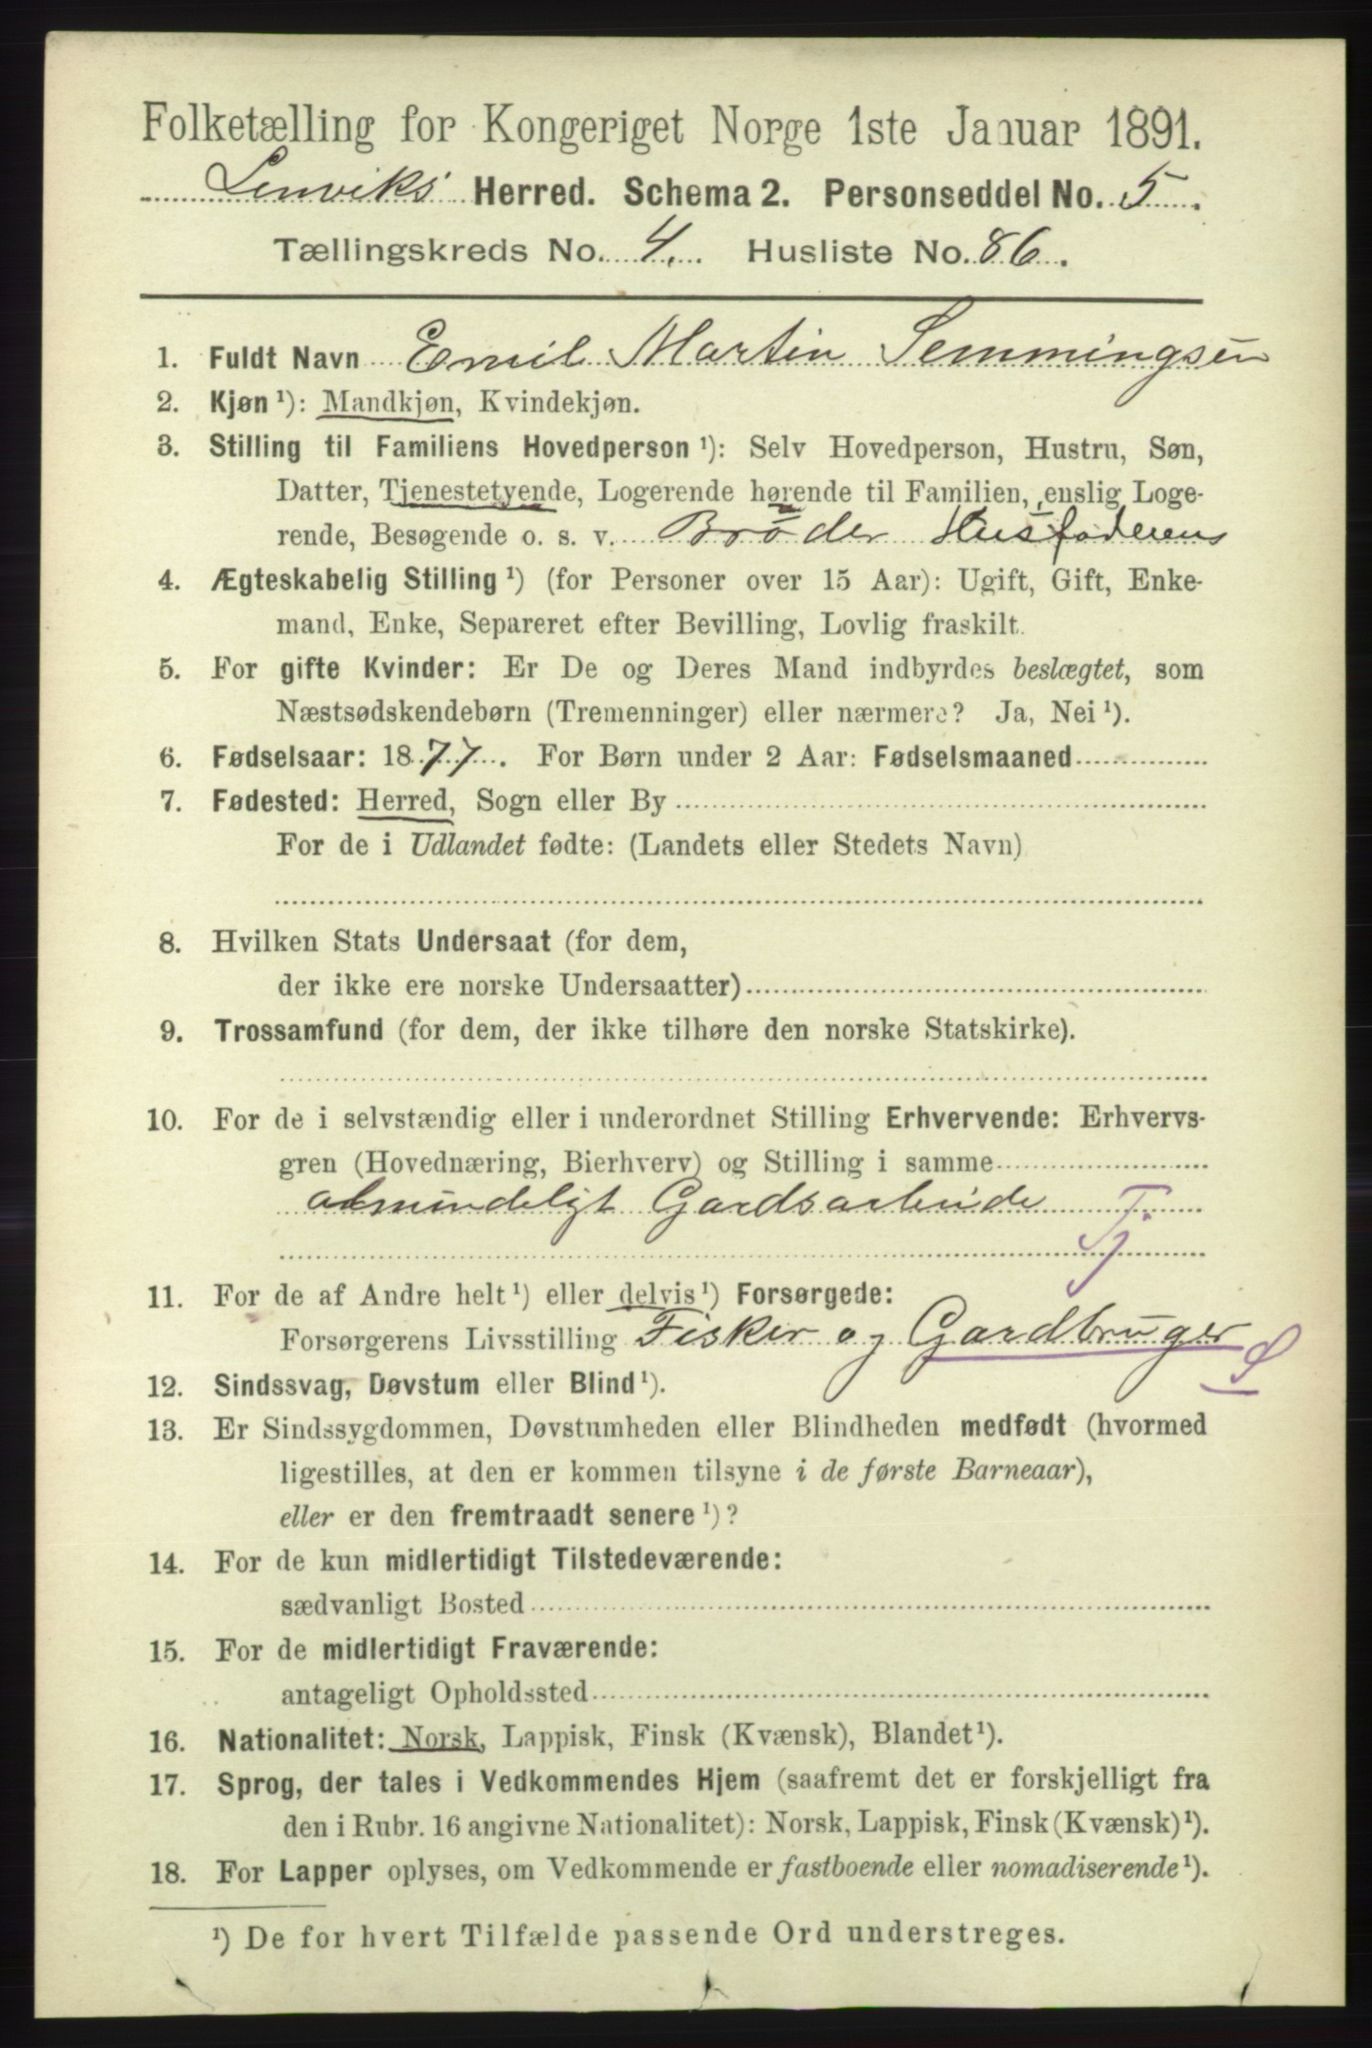 Folketælling for Kongeriget Norge 1ste Januar 1891.
Lenviks Herred. Schema 2. Personseddel No. 5.
Tællingskreds No. 4. Husliste No. 86.
1. Fuldt Navn Emil Martin Semmingsen
2. Kjøn ¹): Mandkjøn, Kvindekjøn.
3. Stilling til Familiens Hovedperson ¹): Selv Hovedperson, Hustru, Søn,
Datter, Tjenestetyende, Logerende hørende til Familien, enslig Loge-
rende, Besøgende o. s. v. Brøder Husfaderens
4. Ægteskabelig Stilling ¹) (for Personer over 15 Aar): Ugift, Gift, Enke-
mand, Enke, Separeret efter Bevilling, Lovlig fraskilt.
5. For gifte Kvinder: Er De og Deres Mand indbyrdes beslægtet, som
Næstsødskendebørn (Tremenninger) eller nærmere? Ja, Nei ¹).
6. Fødselsaar: 1877. For Børn under 2 Aar: Fødselsmaaned
7. Fødested: Herred, Sogn eller By
For de i Udlandet fødte: (Landets eller Stedets Navn)
8. Hvilken Stats Undersaat (for dem,
der ikke ere norske Undersaatter)
9. Trossamfund (for dem, der ikke tilhøre den norske Statskirke).
10. For de i selvstændig eller i underordnet Stilling Erhvervende: Erhvervs-
gren (Hovednæring, Bierhverv) og Stilling i samme
almindeligt Gardsarbeide Tj
11. For de af Andre helt ¹) eller delvis ¹) Forsørgede:
Forsørgerens Livsstilling Fisker og Gardbruger S
12. Sindssvag, Døvstum eller Blind ¹).
13. Er Sindssygdommen, Døvstumheden eller Blindheden medfødt (hvormed
ligestilles, at den er kommen tilsyne i de første Barneaar),
eller er den fremtraadt senere ¹)?
14. For de kun midlertidigt Tilstedeværende:
sædvanligt Bosted
15. For de midlertidigt Fraværende:
antageligt Opholdssted
16. Nationalitet: Norsk, Lappisk, Finsk (Kvænsk), Blandet ¹).
17. Sprog, der tales i Vedkommendes Hjem (saafremt det er forskjelligt fra
den i Rubr. 16 angivne Nationalitet): Norsk, Lappisk, Finsk (Kvænsk) ¹).
18. For Lapper oplyses, om Vedkommende er fastboende eller nomadiserende ¹).
¹) De for hvert Tilfælde passende Ord understreges.